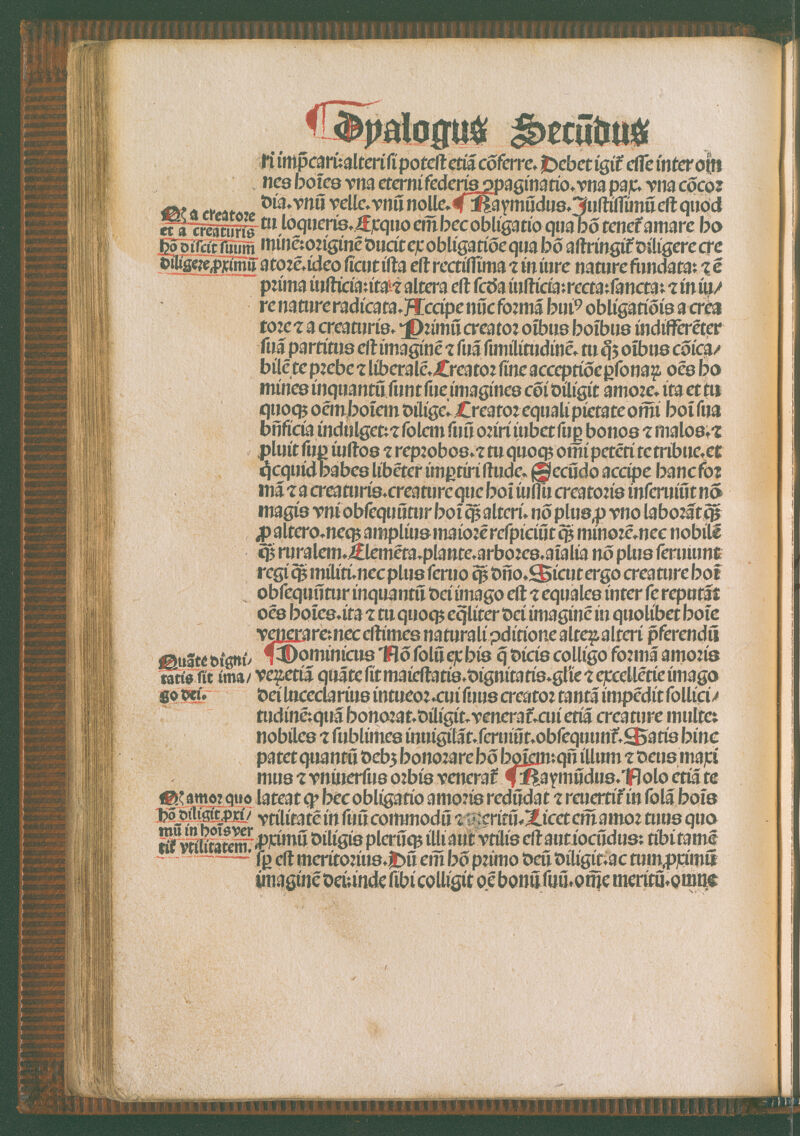 Dyalogus Secūdus
ri imp̄cari:alteri si potest etiā cōferre. Debet igit̄ esse inter om
nes hoīes vna eterni federis ꝯpaginatio. vna pax. vna cōcoꝛ
dia. vnū velle. vnū nolle. ¶ Raymūdus. Iustissimū est quod
tu loqueris. Exquo em̄ hec obligatio qua hō tenet̄ amare ho
minē:oꝛiginē ducit ex obligatiōe qua hō astringit̄ diligere cre
atoꝛē. ideo sicut ista est rectissima ⁊ in iure nature fundata: ⁊ ē
pꝛima iusticia:ita ⁊ altera est scd̄a iusticia:recta:sancta: ⁊ in iu/
re nature radicata. Accipe nūc foꝛmā huiꝰ obligatiōis a crea
toꝛe ⁊ a creaturis. Pꝛimū creatoꝛ oībus hoībus indifferēter
suā partitus est imaginē ⁊ suā similitudinē. tu q̄ꝫ oībus cōica/
bilē te pꝛebe ⁊ liberalē. Creatoꝛ sine acceptiōe ꝑsonaꝝ oēs ho
mines inquantū sunt sue imagines cōi diligit amoꝛe. ita et tu
quoqꝫ oēm hoīem dilige. Creatoꝛ equali pietate om̄i hoī sua
bn̄ficia indulget:⁊ solem suū oꝛiri iubet suꝑ bonos ⁊ malos.⁊
pluit suꝑ iustos ⁊ repꝛobos.⁊ tu quoqꝫ om̄i petēti te tribue. et
q̇cquid habes libēter imꝑtiri stude. Secūdo accipe hanc foꝛ
mā ⁊ a creaturis. creature que hoī iussu creatoꝛis inseruiūt nō
magis vni obsequūtur hoī q̄ꝫ alteri. nō plus ꝓ vno laboꝛāt q̄ꝫ
ꝓ altero. neqꝫ amplius maioꝛē respiciūt q̄ꝫ minoꝛē. nec nobilē
q̄ꝫ ruralem. Elemēta. plante. arboꝛes. aīalia nō plus seruiunt
regi q̄ꝫ militi. nec plus seruo q̄ꝫ dn̄o. Sicut ergo creature hoī
obsequūtur inquantū dei imago est ⁊ equales inter se reputāt
oēs hoīes. ita ⁊ tu quoqꝫ eq̄liter dei imaginē in quolibet hoīe
venerare: nec estimes naturali ꝯditione alteꝝ alteri p̄ferendū
¶ Dominicus Nō solū ex his q̄ dicis colligo foꝛmā amoꝛis
veꝝ etiā quāte sit maiestatis. dignitatis. gl̄ie ⁊ excellētie imago
dei luce clarius intueoꝛ. cui suus creatoꝛ tantā impēdit sollici/
tudinē:quā honoꝛat. diligit. venerat̄. cui etiā creature multe:
nobiles ⁊ sublimes inuigilāt. seruiūt. obsequunt̄. Satis hinc
patet quantū debꝫ honoꝛare hō hoīem: qn̄ illum ⁊ deus maxi
mus ⁊ vniuersus oꝛbis venerat̄ ¶ Raymūdus. Nolo etiā te
lateat ꝙ hec obligatio amoꝛis redūdat ⁊ reuertit̄ in solā hoīs
vtilitatē in suū commodū ⁊ meritū. Licet em̄ amoꝛ tuus quo
ꝓximū diligis pleruqꝫ illi aut vtilis est aut iocūdus: tibi tamē
sꝑ est meritoꝛius. Dū em̄ hō pꝛimo deū diligit. ac tum ꝓximū
imaginē dei: inde sibi colligit oē bonū suū. om̄e meritū. omne
Qꝛ a creatoꝛe
et a creaturis
hō discit suum
diligere ꝓximū
Quāte digni/
tatis sit ima/
go dei.
Qꝛ amoꝛ quo
hō diligit pxi/
mū in hoīs ver
tit̄ vtilitatem.